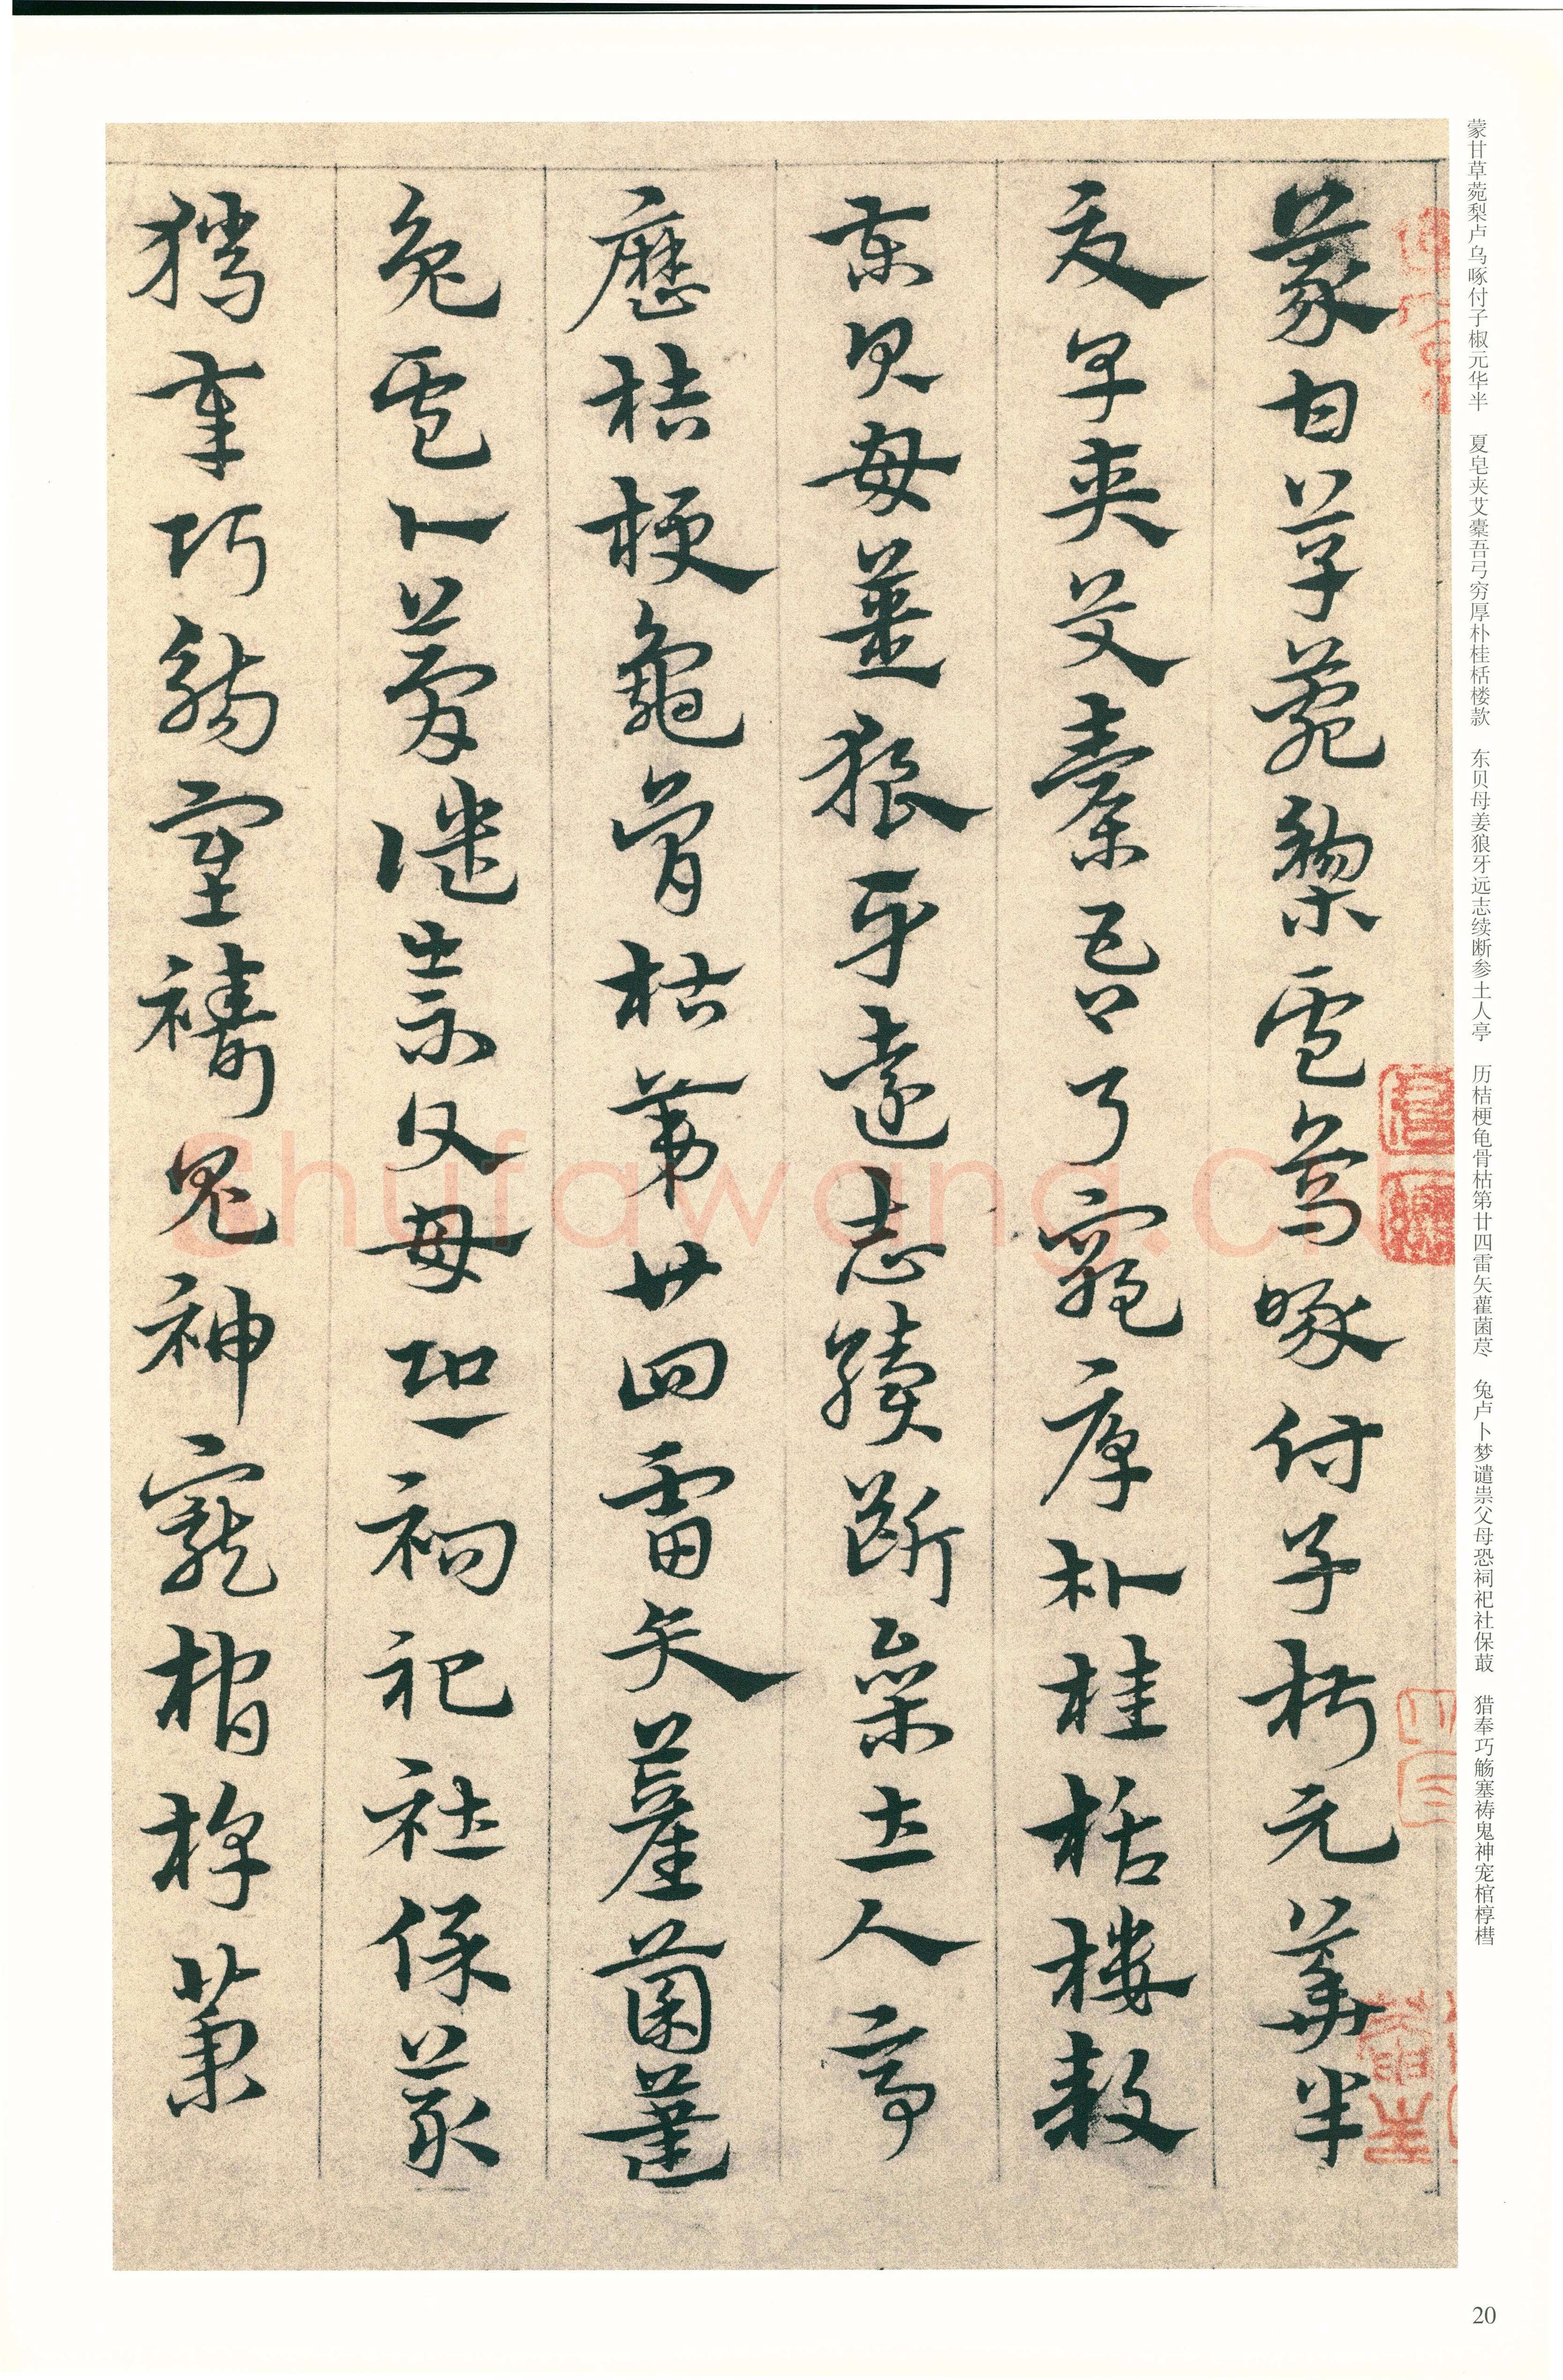 蒙甘草菀梨卢乌啄付子椒元华半
夏皂夹艾橐吾弓穷厚朴桂栝楼款
东贝母姜狼牙远志续断参土人亭
历桔梗龟骨枯第廿四雷矢雚菌荩
兔卢卜梦谴祟父母恐祠祀社保菆
猎奉巧觞塞祷鬼神宠棺椁槥
蒙甘草菀梨盧烏啄付子椒元華半
夏皁夾艾橐吾弓窮厚朴桂栝樓款
東貝母薑狼牙遠志續斷參土人亭
歷桔梗龜骨枯苐廿四雷矢雚菌藎
兔盧卜夢譴祟父母恐祠祀社保菆
獵奉巧觴塞禱鬼神寵棺椁
shufawang.cn
20